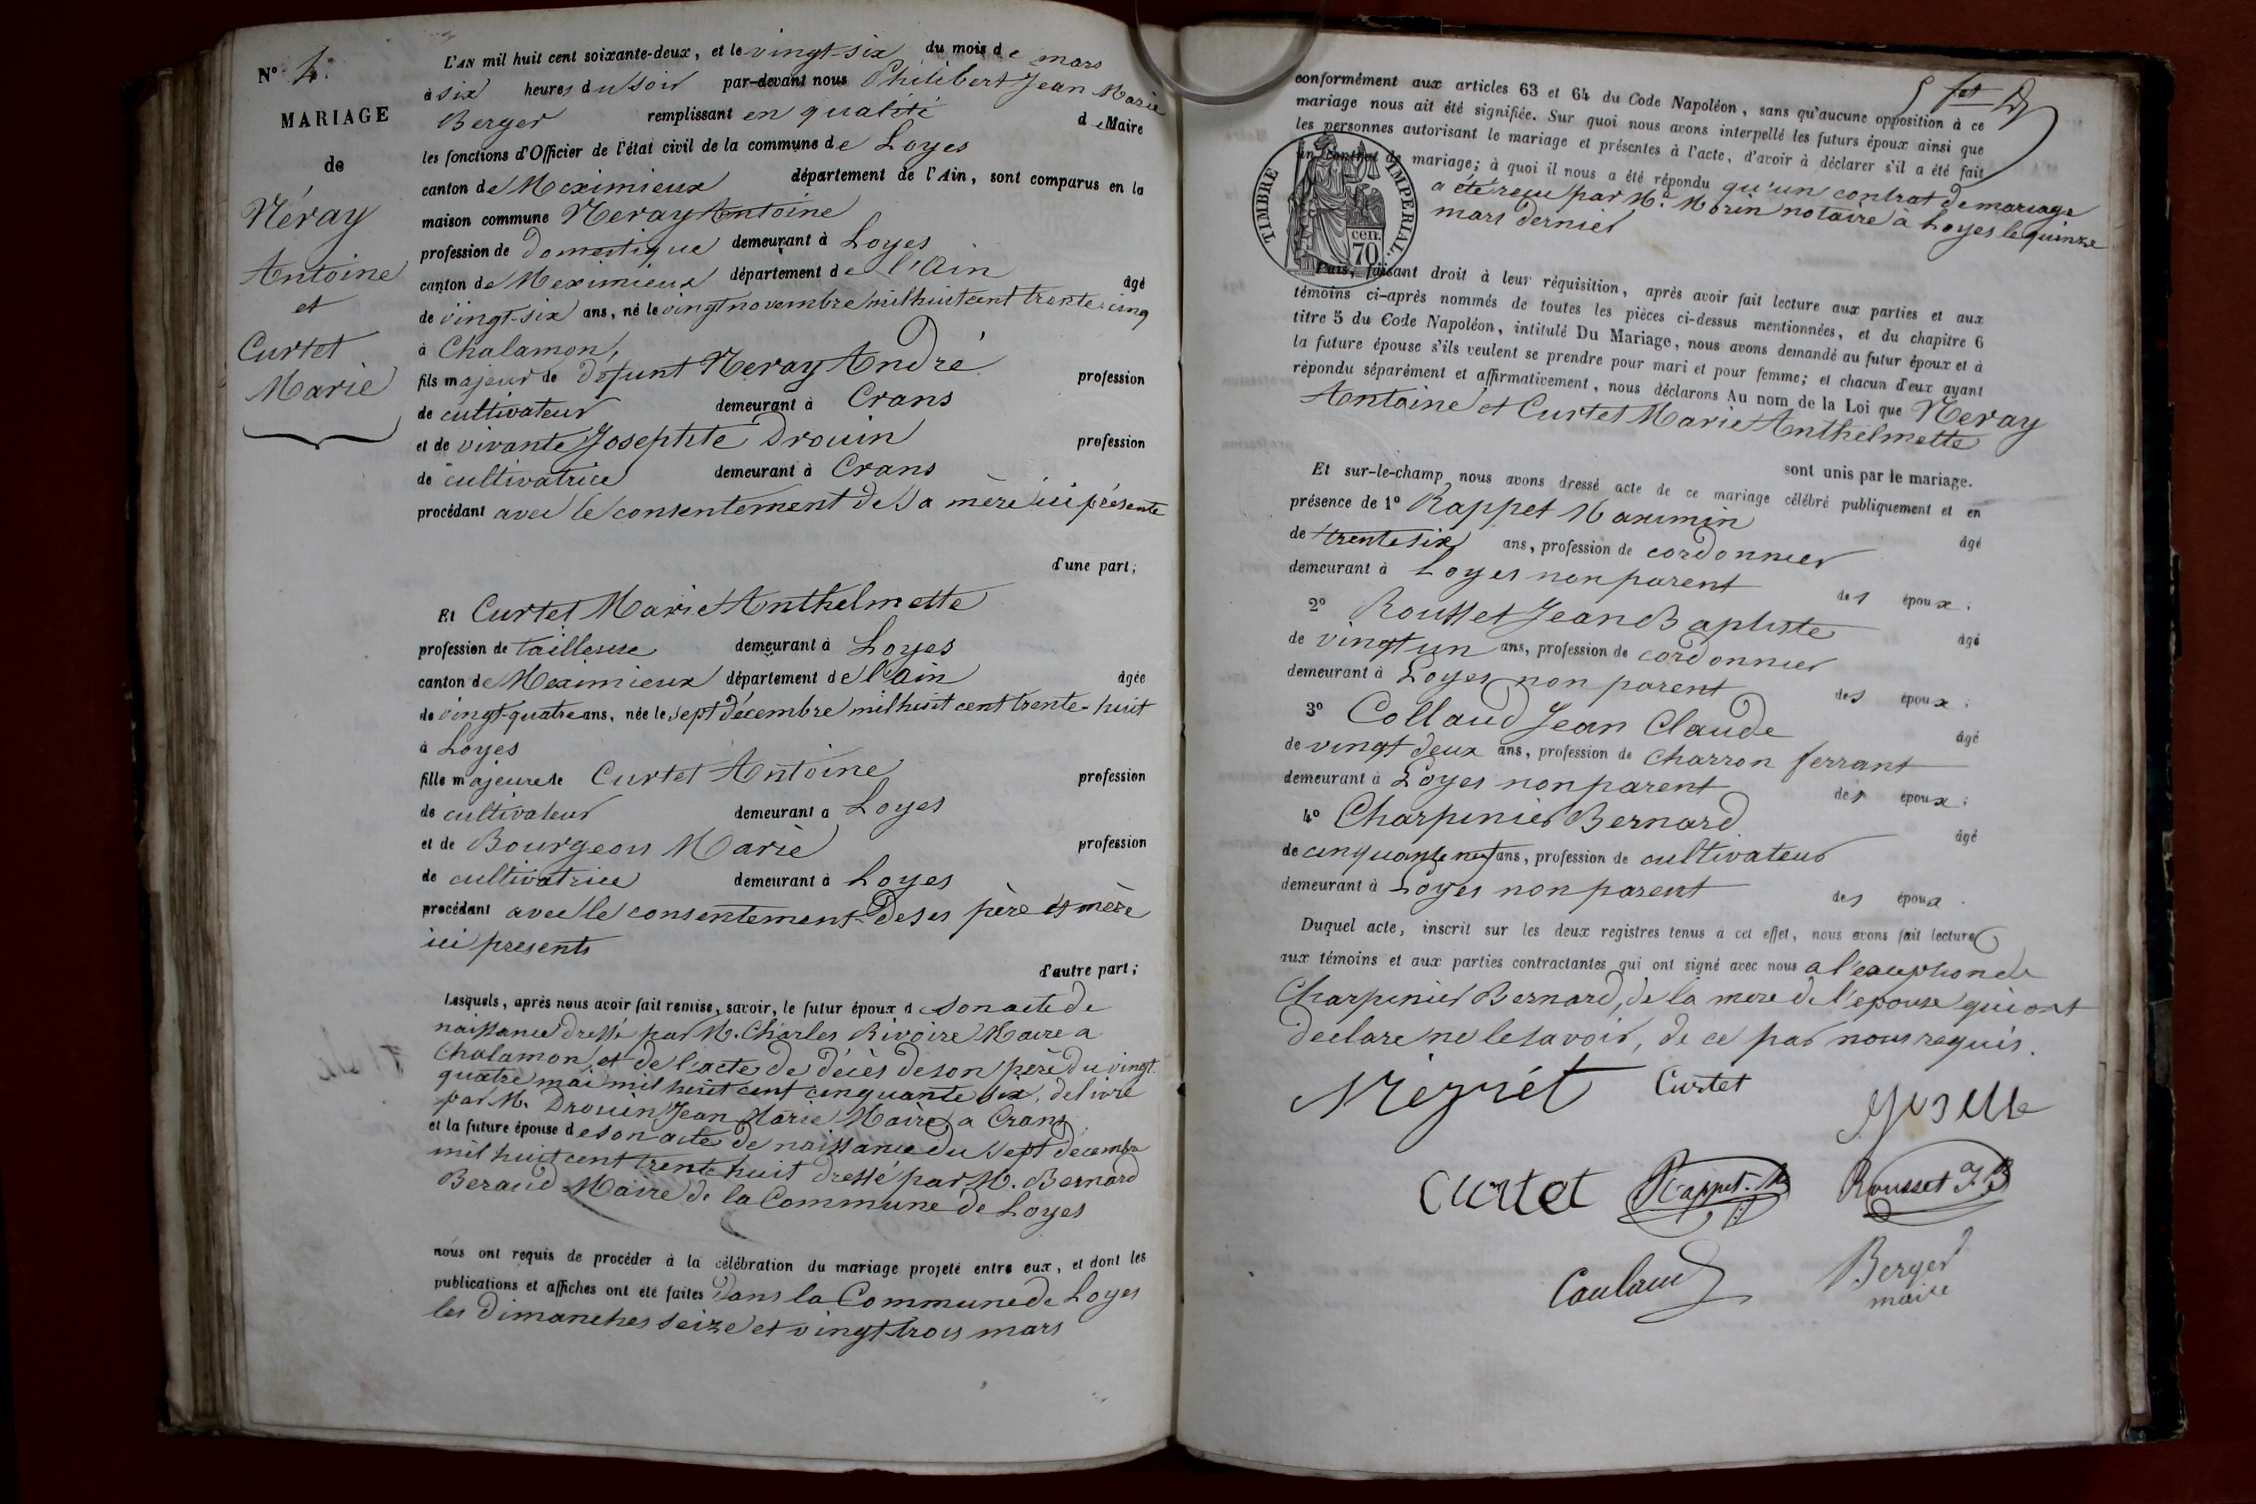 N° 4.
MARIAGE
de
Néray
Antoine
et
Curtet
Marie
L'AN mil huit cent soixante-deux, et le vingt-six du mois de mars
à six heures du soir par-devant nous Philibert Jean Marie
Berger remplissant en qualité de Maire
les fonctions d'Officier de l'état civil de la commune de Loyes
canton de Meximieux département de l'Ain, sont comparus en la
maison commune Neray Antoine
profession de domestique demeurant à Loyes
canton de Meximieux département de l'Ain âgé
de vingt-six ans, né le vingt novembre mil huit cent trente cinq
à Chalamon,
fils majeur de défunt Neray André profession
de cultivateur demeurant à Crans
et de vivante Josephte Drouin profession
de cultivatrice demeurant à Crans
procédant avec le consentement de sa mère ici présente
d'une part;
Et Curtet Marie Anthelmette
profession de tailleuse demeurant à Loyes
canton de Meximieux département de l'Ain âgée
de vingt-quatre ans, née le sept décembre mil huit cent trente-huit
à Loyes
fille majeure de Curtet Antoine profession
de cultivateur demeurant à Loyes
et de Bourgeon Marie profession
de cultivatrice demeurant à Loyes
procédant avec le consentement de ses père et mère
ici presents
d'autre part;
Lesquels, après nous avoir fait remise, savoir, le futur époux de son acte de
naissance dressé par M. Charles Rivoire Maire a
Chalamon, et de l'acte de décès de son père du vingt
quatre mai mil huit cent cinquante six, delivré
par M. Drouin Jean Marie Maire a Crans
et la future épouse de son acte de naissance du sept decembre
mil huit cent trente huit dressé par M. Bernard
Beraud Maire de la Commune de Loyes
nous ont requis de procéder à la célébration du mariage projeté entre eux, et dont les
publications et affiches ont été faites dans la Commune de Loyes
les dimanches seize et vingt-trois mars
conformément aux articles 63 et 64 du Code Napoléon, sans qu'aucune opposition à ce
mariage nous ait été signifiée. Sur quoi nous avons interpellé les futurs époux ainsi que
les personnes autorisant le mariage et présentes à l'acte, d'avoir à déclarer s'il a été fait
un contrat de mariage; à quoi il nous a été répondu qu'un contrat de mariage
a été reçu par Me. Morin notaire à Loyes le quinze
mars dernier
TIMBRE IMPERIAL.
70 cen.
Puis, faisant droit à leur réquisition, après avoir fait lecture aux parties et aux
témoins ci-après nommés de toutes les pièces ci-dessus mentionnées, et du chapitre 6
titre 5 du Code Napoléon, intitulé Du Mariage, nous avons demandé au futur époux et à
la future épouse s'ils veulent se prendre pour mari et pour femme; et chacun d'eux ayant
répondu séparément et affirmativement, nous déclarons Au nom de la Loi que Neray
Antoine et Curtet Marie Anthelmette
sont unis par le mariage.
Et sur-le-champ nous avons dressé acte de ce mariage célébré publiquement et en
présence de 1° Rappet Maximin âgé
de trente six ans, profession de cordonnier
demeurant à Loyes non parent des époux;
2° Rousset Jean Baptiste âgé
de vingt un ans, profession de cordonnier
demeurant à Loyes non parent des époux;
3° Collaud Jean Claude âgé
de vingt deux ans, profession de charron ferrant
demeurant à Loyes non parent des époux;
4° Charpinier Bernard âgé
de cinquante neuf ans, profession de cultivateur
demeurant à Loyes non parent des époux.
Duquel acte, inscrit sur les deux registres tenus à cet effet, nous avons fait lecture
aux témoins et aux parties contractantes qui ont signé avec nous a l'exception de
Charpinier Bernard, de la mere de l'epouse qui ont
declare ne le savoir, de ce par nous requis.
Curtet
Curtet Rappet. M Rousset J B
Caulaud Berger
maire